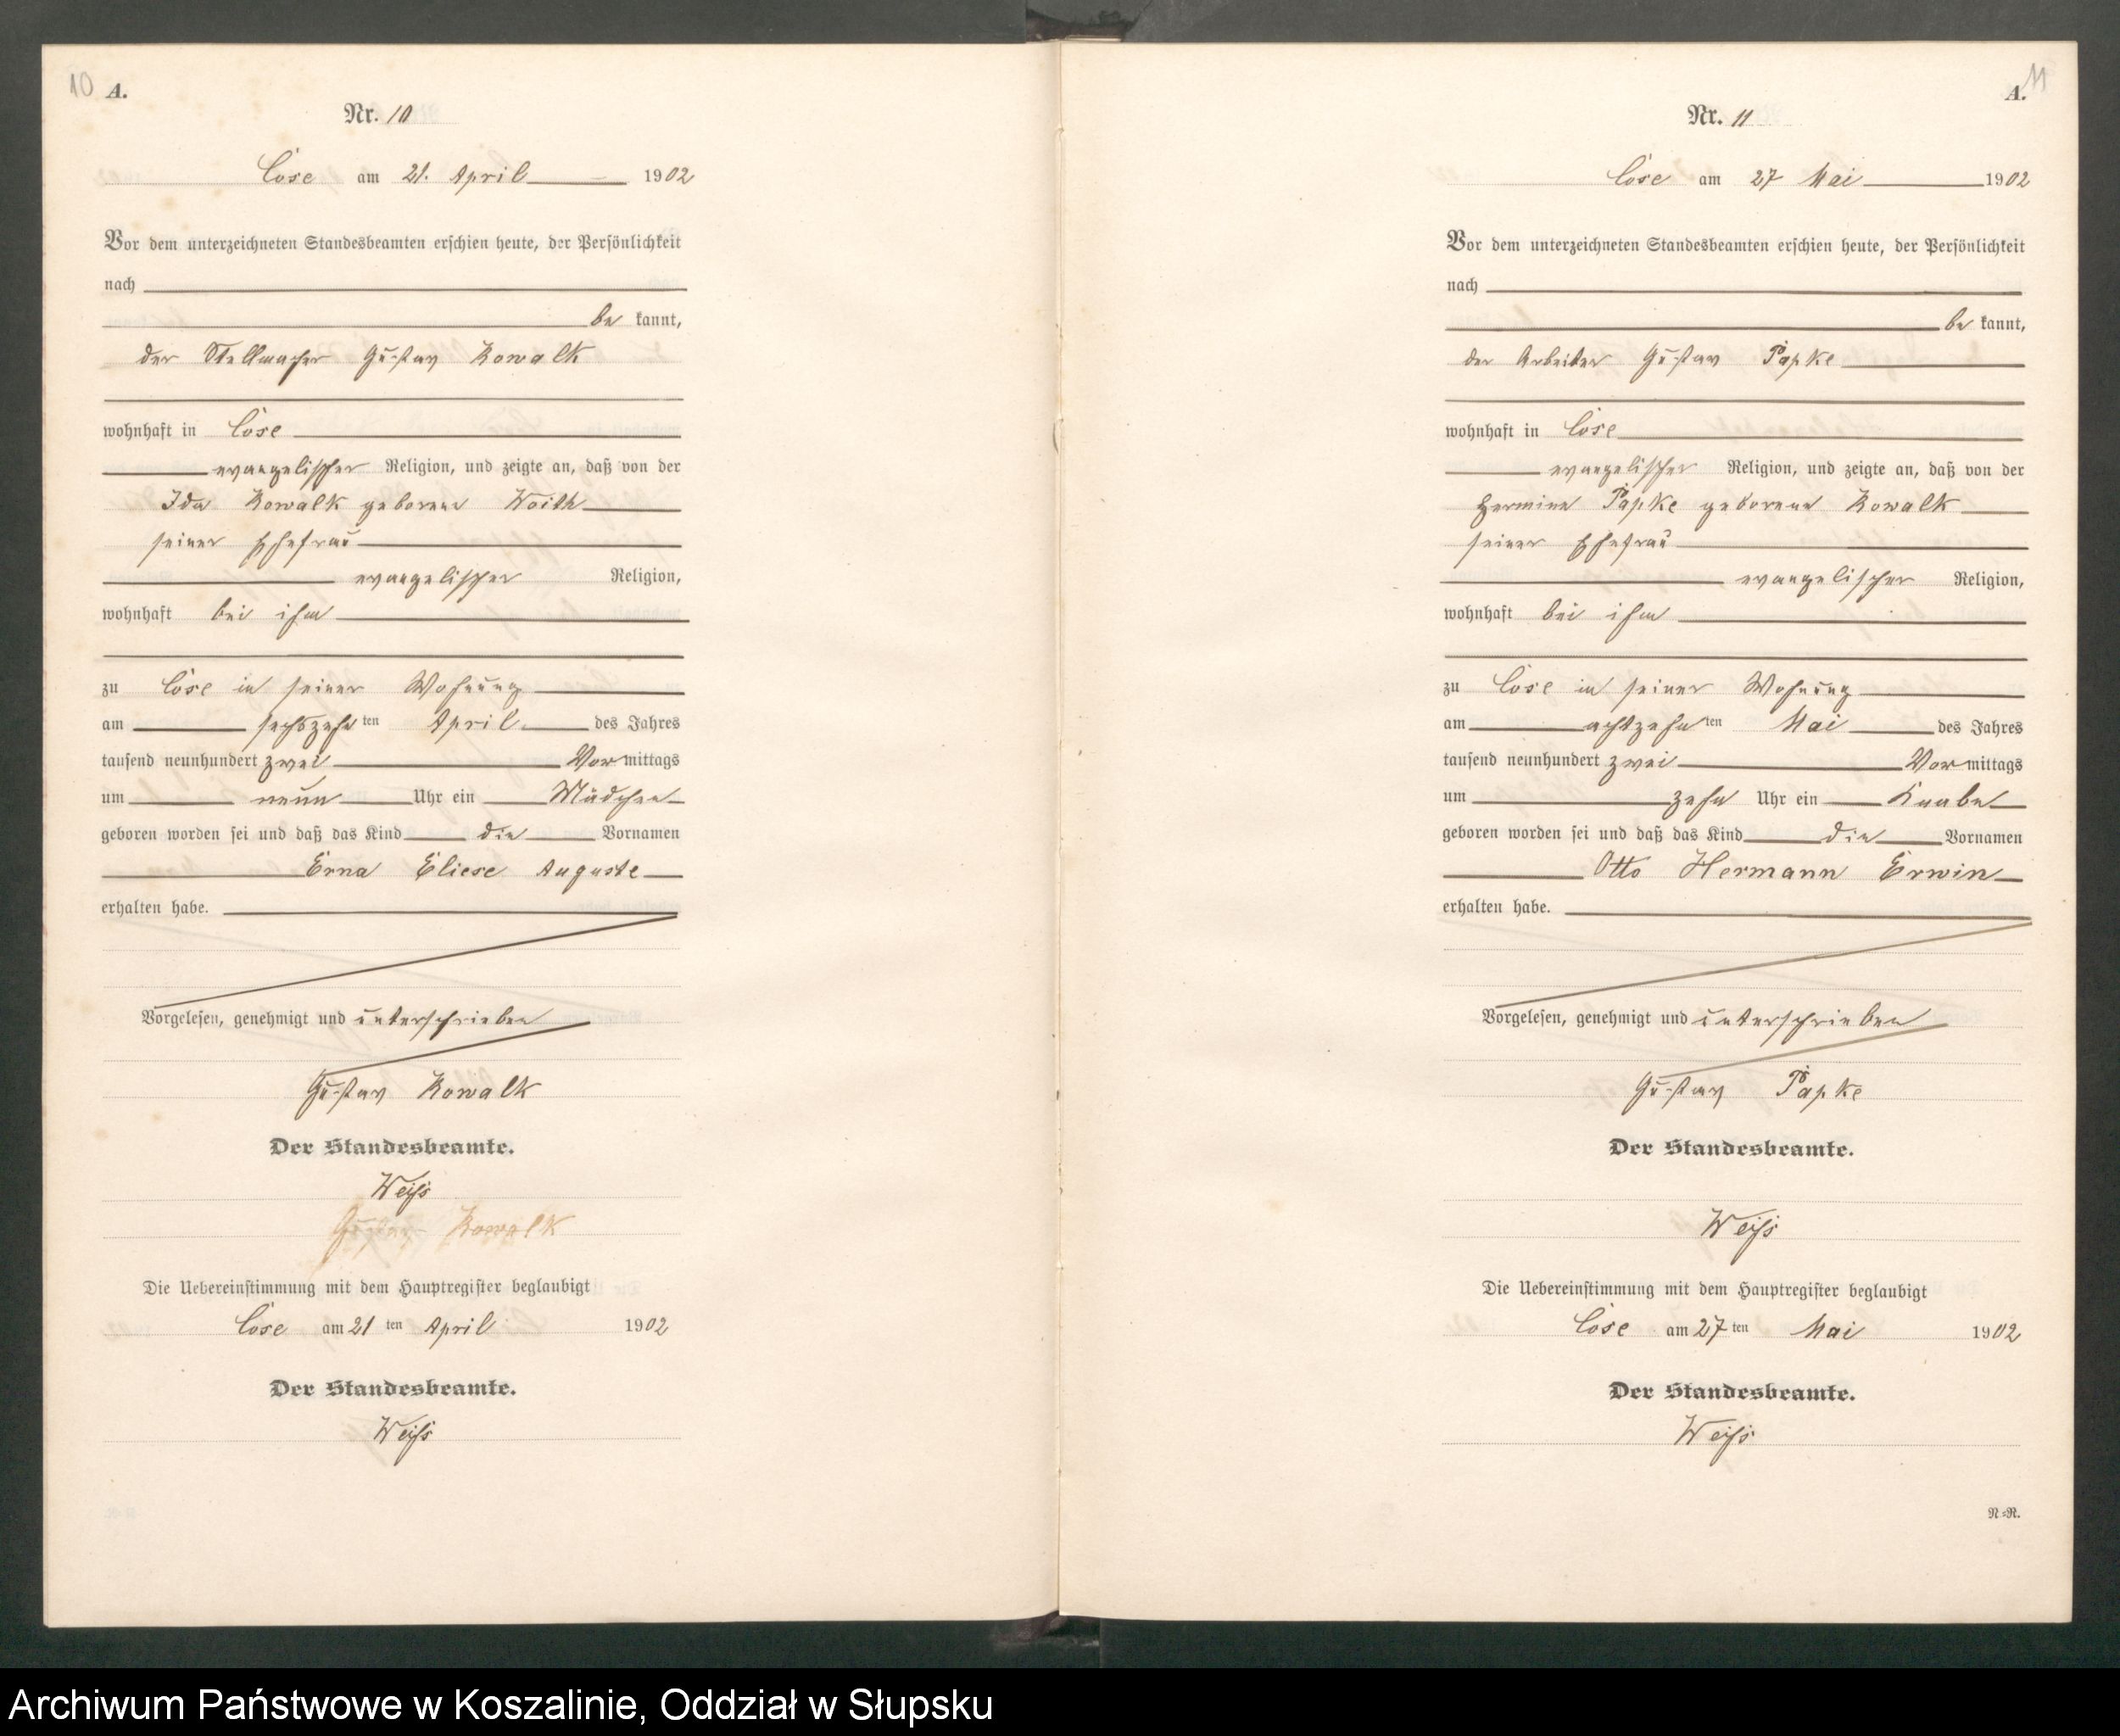 10 A.
Nr. 10
Cose am 21. April 1902
Vor dem unterzeichneten Standesbeamten erschien heute, der Persönlichkeit
nach
be kannt,
der Stellmacher Gustav Kowalk
wohnhaft in Cose
evangelischer Religion, und zeigte an, daß von der
Ida Kowalk geborene Woith
seiner Ehefrau
evangelischer Religion,
wohnhaft bei ihm
zu Cose in seiner Wohnung
am sechszehnten April des Jahres
tausend neunhundert zwei Vormittags
um neun Uhr ein Mädchen
geboren worden sei und daß das Kind die Vornamen
Erna Eliese Auguste
erhalten habe.
Vorgelesen, genehmigt und unterschrieben
Gustav Kowalk
Der Standesbeamte.
Weiß
Gustav Kowalk
Die Uebereinstimmung mit dem Hauptregister beglaubigt
Cose am 21 ten April 1902
Der Standesbeamte.
Weiß
11
A.
Nr. 11
Cose am 27 Mai 1902
Vor dem unterzeichneten Standesbeamten erschien heute, der Persönlichkeit
nach
be kannt,
der Arbeiter Gustav Papke
wohnhaft in Cose
evangelischer Religion, und zeigte an, daß von der
Hermine Papke geborene Kowalk
seiner Ehefrau
evangelischer Religion,
wohnhaft bei ihm
zu Cose in seiner Wohnung
am achtzehnten Mai des Jahres
tausend neunhundert zwei Vormittags
um zehn Uhr ein Knabe
geboren worden sei und daß das Kind die Vornamen
Otto Hermann Erwin
erhalten habe.
Vorgelesen, genehmigt und unterschrieben
Gustav Papke
Der Standesbeamte.
Weiß
Die Uebereinstimmung mit dem Hauptregister beglaubigt
Cose am 27 ten Mai 1902
Der Standesbeamte.
Weiß
N=R.
Archiwum Państwowe w Koszalinie, Oddział w Słupsku